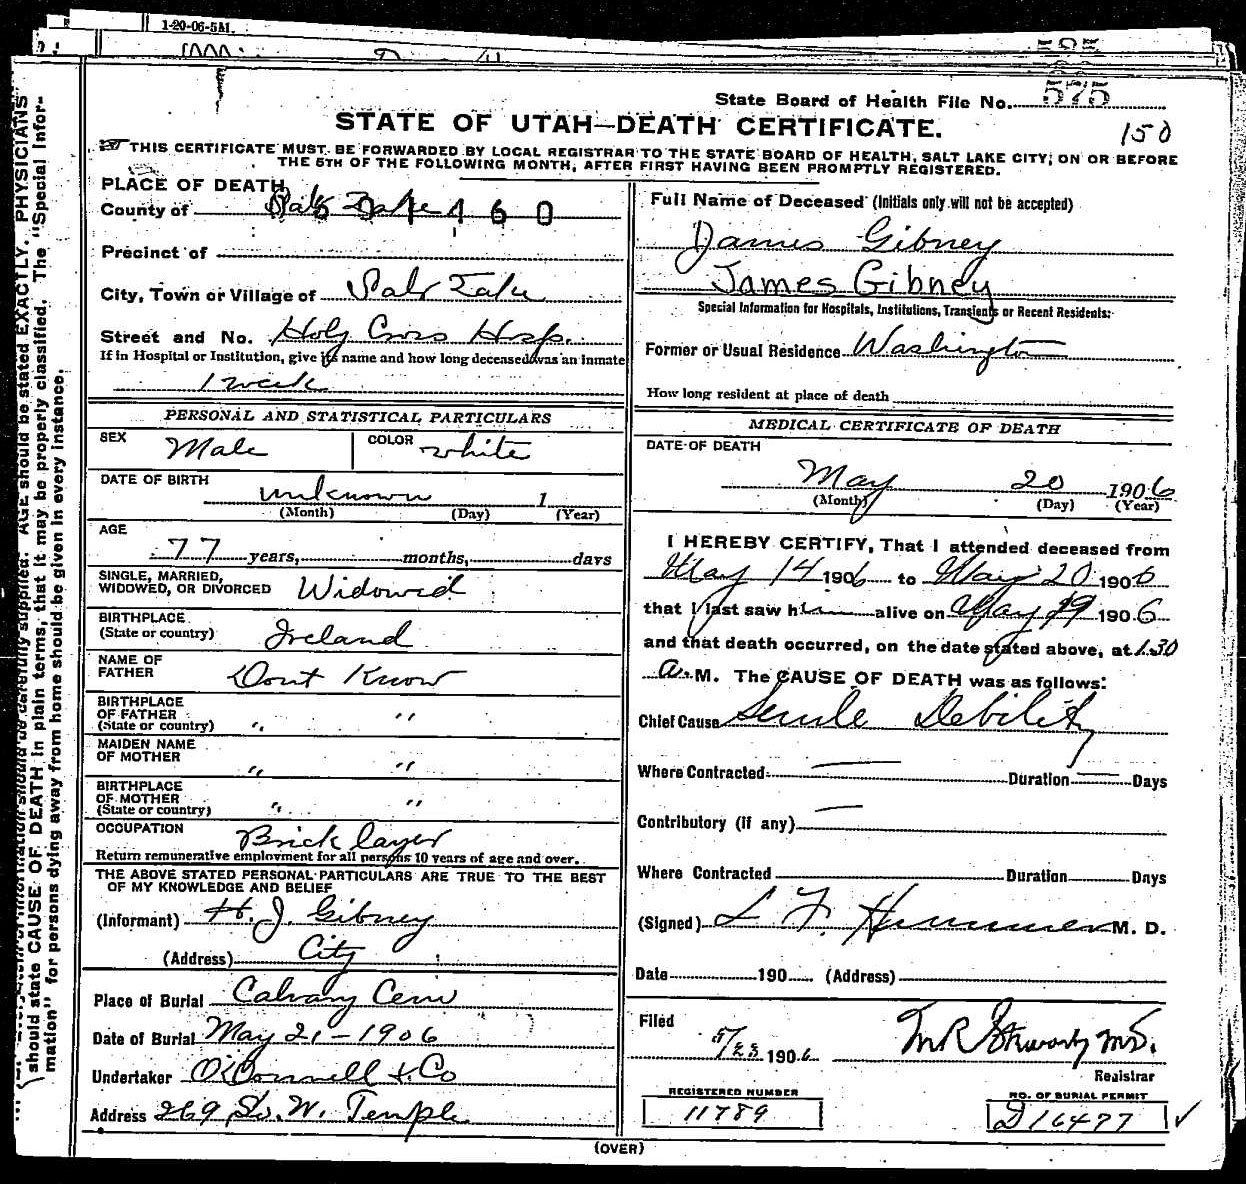 1-20-06-5M.
State Board of Health File No. 575
STATE OF UTAH—DEATH CERTIFICATE.
150
THIS CERTIFICATE MUST BE FORWARDED BY LOCAL REGISTRAR TO THE STATE BOARD OF HEALTH, SALT LAKE CITY, ON OR BEFORE
THE 5TH OF THE FOLLOWING MONTH, AFTER FIRST HAVING BEEN PROMPTLY REGISTERED.
PLACE OF DEATH
County of Salt Lake 1 4 6 0
Precinct of
City, Town or Village of Salt Lake
Street and No. Holy Cross Hosp.
If in Hospital or Institution, give its name and how long deceased was an inmate
1 week
PERSONAL AND STATISTICAL PARTICULARS
SEX Male COLOR white
DATE OF BIRTH unknown 1
(Month) (Day) (Year)
AGE
77 years, months, days
SINGLE, MARRIED,
WIDOWED, OR DIVORCED Widowed
BIRTHPLACE
(State or country) Ireland
NAME OF
FATHER Dont Know
BIRTHPLACE
OF FATHER
(State or country) " "
MAIDEN NAME
OF MOTHER " "
BIRTHPLACE
OF MOTHER
(State or country) " "
OCCUPATION Brick layer
Return remunerative employment for all persons 10 years of age and over.
THE ABOVE STATED PERSONAL PARTICULARS ARE TRUE TO THE BEST
OF MY KNOWLEDGE AND BELIEF
(Informant) H. J. Gibney
(Address) City
Place of Burial Calvary Cem
Date of Burial May 21-1906
Undertaker O'Donnell & Co
Address 269 So. W. Temple
Full Name of Deceased (Initials only will not be accepted)
James Gibney
James Gibney
Special Information for Hospitals, Institutions, Transients or Recent Residents:
Former or Usual Residence Washington
How long resident at place of death
MEDICAL CERTIFICATE OF DEATH
DATE OF DEATH
May 20 1906
(Month) (Day) (Year)
I HEREBY CERTIFY, That I attended deceased from
May 14 1906 to May 20 1906
that I last saw him alive on May 19 1906
and that death occurred, on the date stated above, at 1.30
a. M. The CAUSE OF DEATH was as follows:
Chief Cause Senile Debility
Where Contracted — Duration — Days
Contributory (if any) —
Where Contracted Duration Days
(Signed) L F. Hummer M. D.
Date 190 (Address)
Filed
5/23 1906
Registrar
REGISTERED NUMBER
11789
NO. OF BURIAL PERMIT
D16477 ✓
(OVER)
EXACTLY. PHYSICIANS
should state CAUSE OF DEATH in plain terms, that it may be properly classified. The "Special Infor-
mation" for persons dying away from home should be given in every instance.